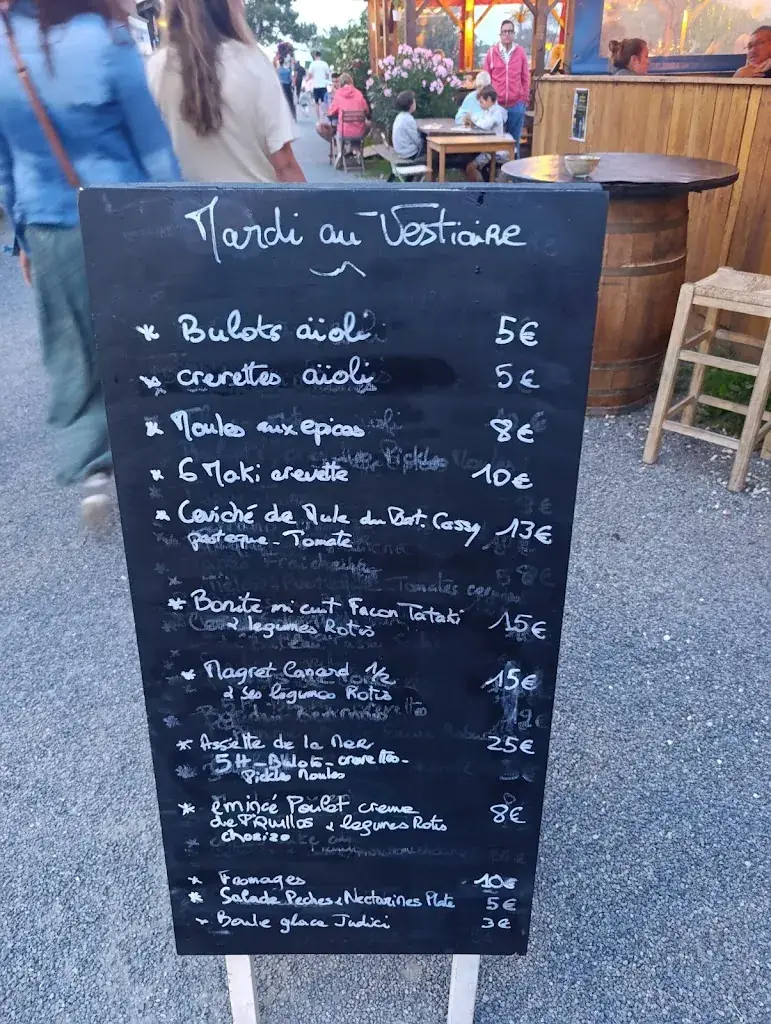 Mardi au Vestiaire
* Bulots aïoli 5€
* crevettes aïoli 5€
* Moules aux epices 8€
* 6 Maki crevette 10€
* Ceviché de Mule du Bat. Cassy 13€
pasteque - Tomate
* Bonite mi cuit Facon Tataki 15€
& legumes Rotis
* Magret Canard 1/2 15€
& ses legumes Rotis
* Assiette de la Mer 25€
5H - Bulots - crevettes -
Pickles Moules
* émincé Poulet creme 8€
de Piquillos & legumes Rotis
chorizo
* Fromages 10€
* Salade Peches & Nectarines Plate 5€
* Boule glace Judici 3€